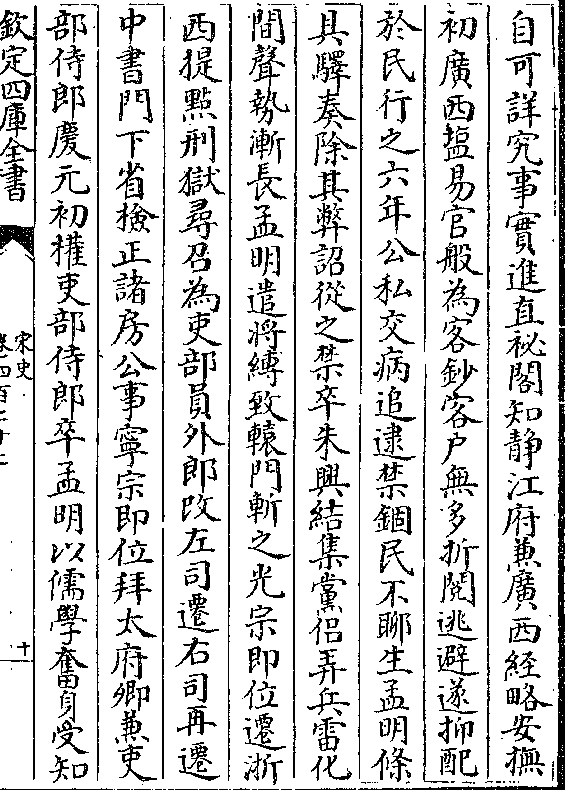 自可詳究事實進直祕閣知静江府兼廣西經略安撫
初廣西鹽易官般為客鈔客户無多折閱逃避遂抑配
於民行之六年公私交病追逮禁錮民不聊生孟明條
具驛奏除其弊詔從之禁卒朱興結集黨侣弄兵雷化
間聲勢漸長孟明遣將縛致轅門斬之光宗即位遷浙
西提點刑獄尋召為吏部員外郎改左司遷右司再遷
中書門下省檢正諸房公事寧宗即位拜太府卿兼吏
部侍郎慶元初權吏部侍郎卒孟明以儒學奮身受知
欽定四庫全書
宋史
十